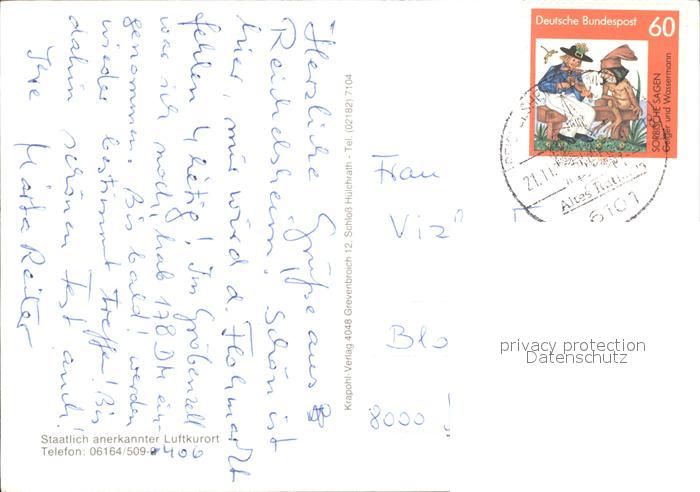 Herzliche Grüße aus
Reichelsheim! Schön ist
hier, nur wird d. Flohmarkt
fehlen 4 tätig! In Gröbenzell
war ich noch, hab 178 DM ein-
genommen. Bis bald! werden
wieder bestimmt treffen! Bis
dahin schönen Fest auch!
Ihre Marta Reiter
Staatlich anerkannter Luftkurort
Telefon: 06164/509-
Krapohl-Verlag 4048 Grevenbroich 12, Schloß Hülchrath - Tel. (02182) 7104
Deutsche Bundespost 60
SORBISCHE SAGEN
Geiger und Wassermann
21.11.
Altes
6101
Frau
Viz
Blo
8000
privacy protection
Datenschutz